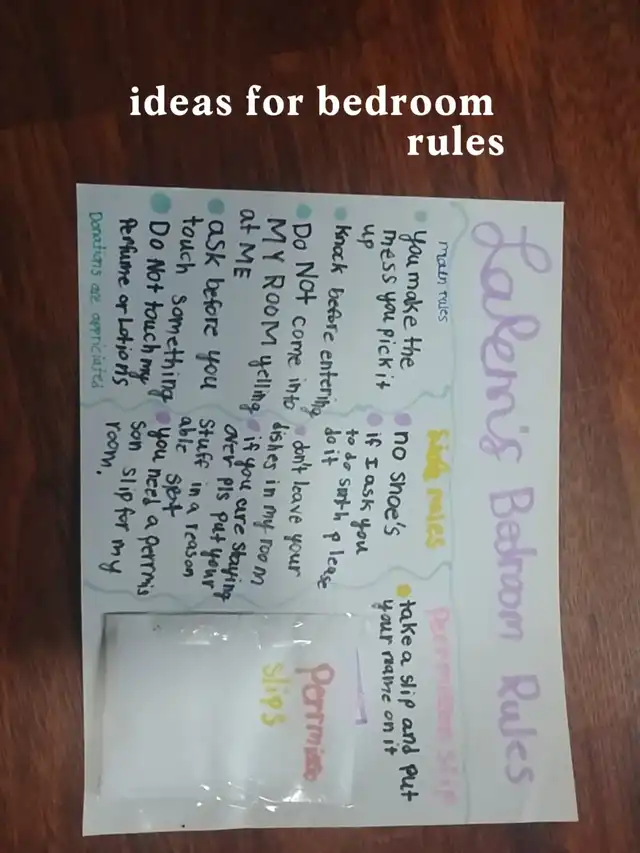 ideas for bedroom
rules
Lalem's Bedroom Rules
main rules
you make the
mess you pick it
up
Knock before entering
Do Not come into
MY ROOM yelling
at ME
ask before you
touch something
Do Not touch my
Perfume or Lotions
Donations are appriciated
Side rules
no shoe's
If I ask you
to do smth please
do it
don't leave your
dishes in my room
if you are staying
over pls put your
Stuff in a reason
able spot
you need a permis
son slip for my
room.
Permission slip
take a slip and put
your name on it
Permissio
slips